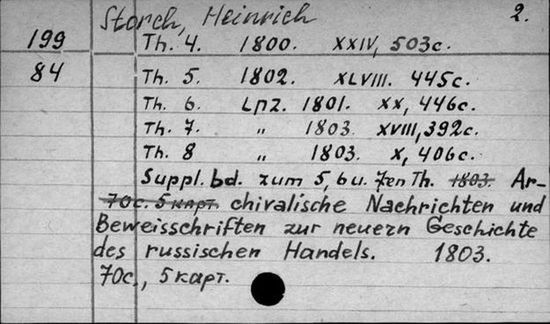 Storch, Heinrich 2.
199 Th. 4. 1800. XXIV, 503с.
84 Th. 5. 1802. XLVIII. 445с.
Th. 6. Lpz. 1801. XX, 446с.
Th. 7. „ 1803. XVIII, 392с.
Th. 8 „ 1803. X, 406с.
Suppl. bd. zum 5, 6 u. 7en Th. 1803. Ar-
70с. 5 карт. chivalische Nachrichten und
Beweisschriften zur neuern Geschichte
des russischen Handels. 1803.
70с., 5 карт.